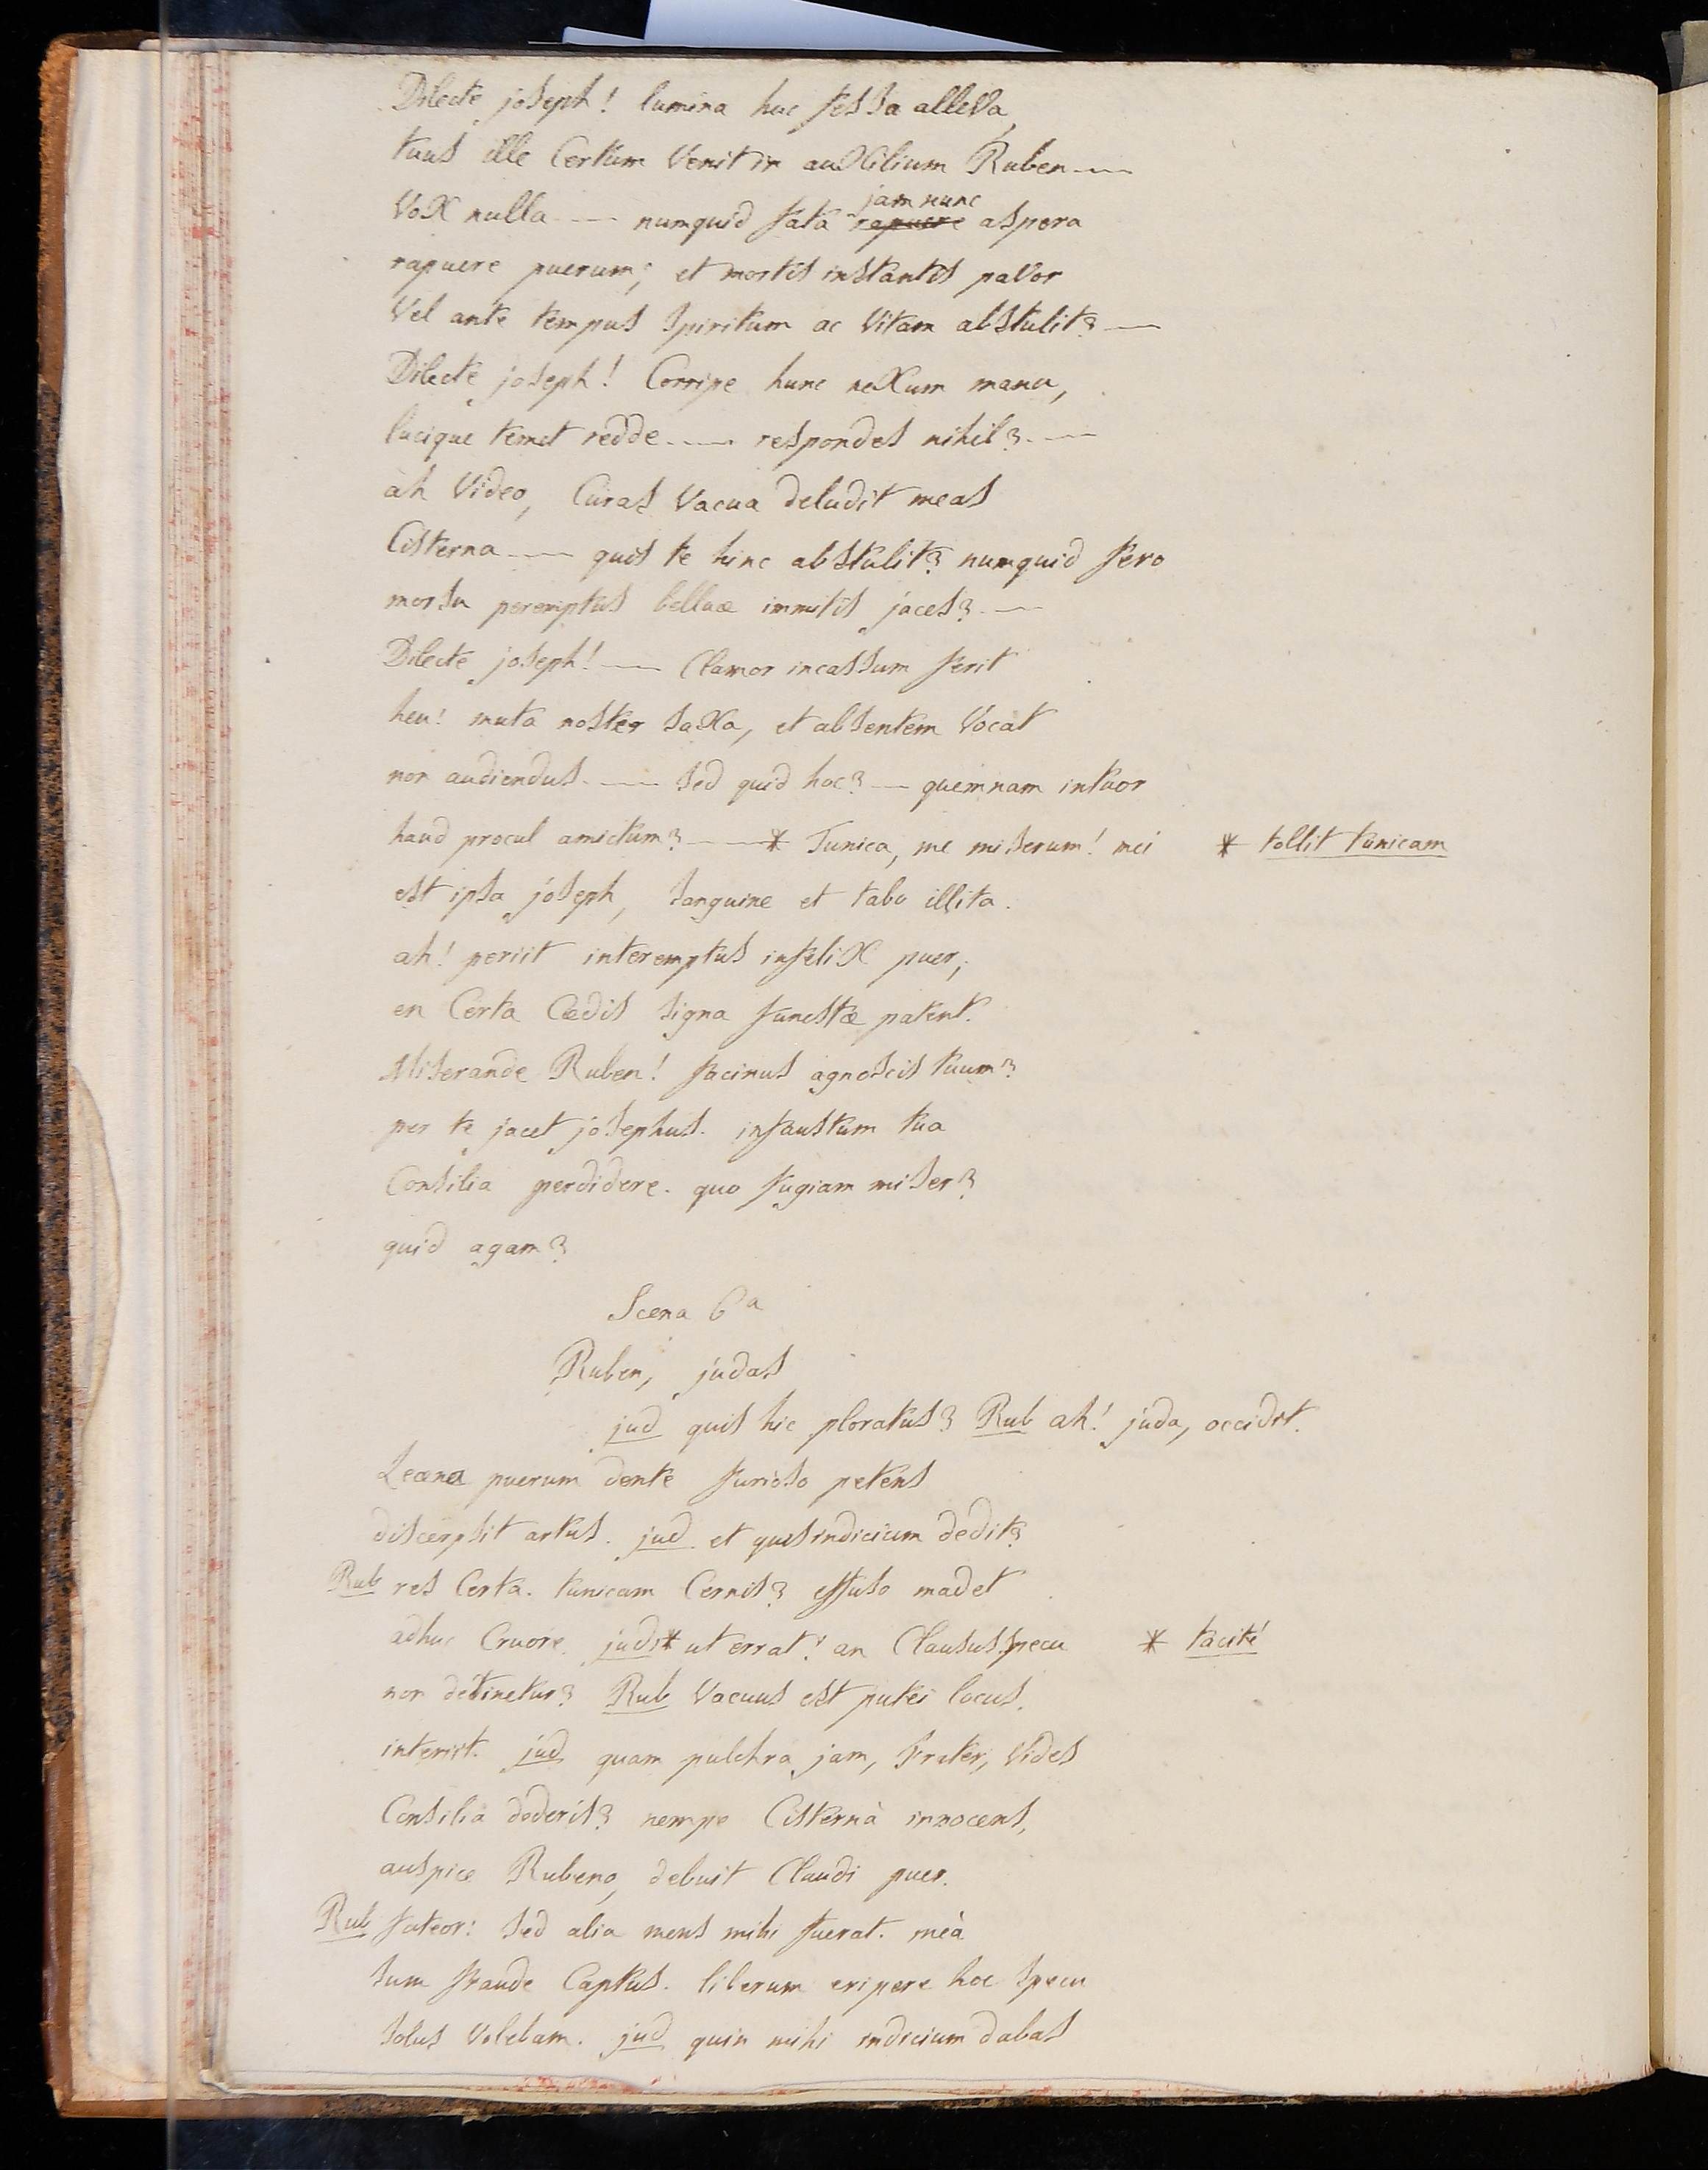 Dilecte joseph! lumina huc fessa alleva,
tuus ille Certùm Venit in auxilium Ruben ---
Vox nulla --- numquid fata ~~rapuere~~ jam nunc aspera
rapuere puerum; et mortis instantis pavor
Vel ante tempus spiritum ac Vitam abstulit? ---
Dilecte joseph! Corripe hunc nexum manu,
lucique temet redde --- respondes nihil? ---
ah Video, Curas Vacua deludit meas
Cisterna --- quis te hinc abstulit? numquid fero
morsu peremptus belluæ immitis jaces? ---
Dilecte joseph! --- Clamor incassum ferit
heu! muta noster saxa, et absentem Vocat
non audiendus. --- sed quid hoc? --- quemnam intuor
haud procul amictum? --- * Tunica, me miserum! mei * tollit tunicam
est ipsa joseph, sanguine et tabo illita.
ah! periit interemptus infelix puer;
en Certa Cædis signa funestæ patent.
Miserande Ruben! facinus agnoscis tuum?
per te jacet josephus. infaustum tua
Consilia perdidere. quo fugiam miser?
quid agam?
Scena 6a
Ruben, judas
jud quis hic ploratus? Rub ah! juda, occidit.
Leæna puerum dente furioso petens
discerpsit artus. jud et quis indicium dedit?
Rub res Certa. tunicam Cernis? effuso madet
adhuc Cruore. jud * ut errat! an Clausus specu * tacitè
non detinetur? Rub Vacuus est putei locus.
interiit. jud quam pulchra jam, frater, Vides
Consilia dederis? nempe Cisternà innocens,
auspice Rubeno, debuit Claudi puer.
Rub fateor: sed alia mens mihi fuerat. meà
sum fraude Captus. liberum eripere hoc specu
solus Volebam. jud quin mihi indicium dabas